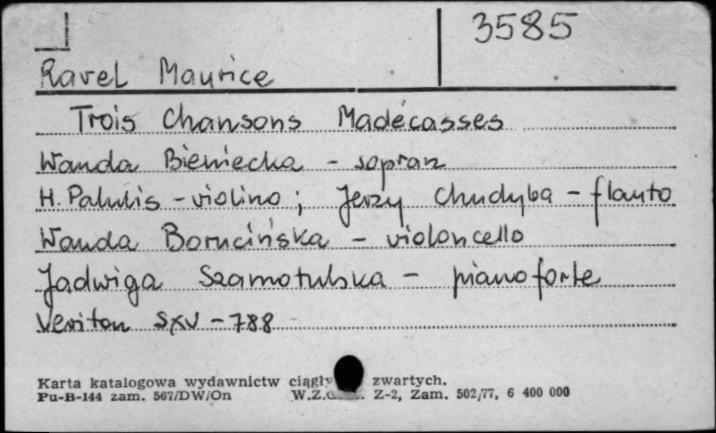 3585
Ravel Maurice
Trois Chansons Madécasses
Wanda Bieniecka - sopran
H. Palulis - violino; Jerzy Chudyba - flauto
Wanda Borucińska - violoncello
Jadwiga Szamotulska - pianoforte
Veriton SXV - 788
Karta katalogowa wydawnictw ciągły zwartych.
Pu-B-144 zam. 567/DW/On W.Z. Z-2, Zam. 502/77, 6 400 000